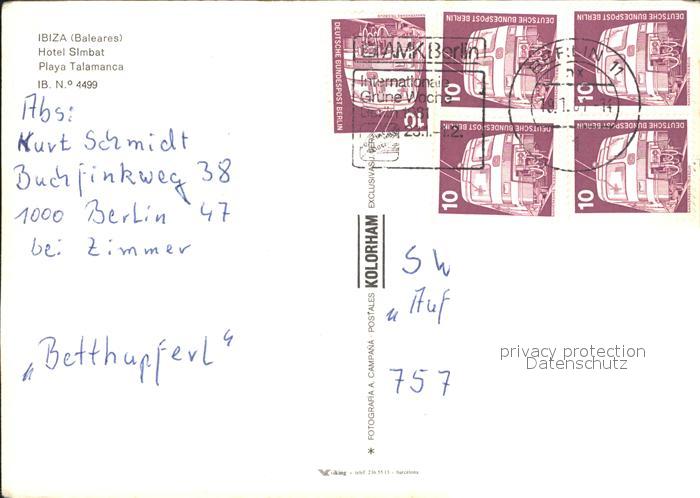 IBIZA (Baleares)
Hotel SImbat
Playa Talamanca
IB. N.º 4499
Abs:
Kurt Schmidt
Buchfinkweg 38
1000 Berlin 47
bei Zimmer
„Betthupferl“
DEUTSCHE BUNDESPOST BERLIN
10
DEUTSCHE BUNDESPOST BERLIN
10
DEUTSCHE BUNDESPOST BERLIN
10
DEUTSCHE BUNDESPOST BERLIN
10
DEUTSCHE BUNDESPOST BERLIN
10
AMK Berlin
Internationale
Grüne Woche
Berlin 1981
23.1.-1.2.
BERLIN 11
* FOTOGRAFIA A. CAMPAÑA · POSTALES KOLORHAM EXCLUSIVAS
SW
„Auf
757
privacy protection
Datenschutz
viking · telef. 236 55 13 · barcelona